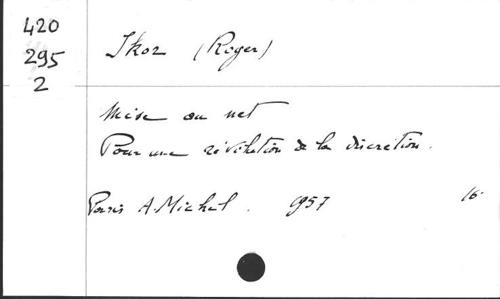 420
295
2
Ikor (Roger)
Mise au net
Pour une révolution de la discrétion.
Paris A. Michel. 1957 16